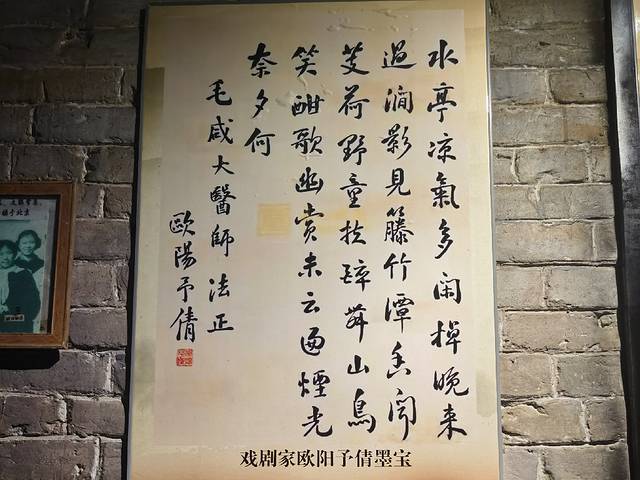 水亭凉氣多闲棹晚来
過涧影見籐竹潭香闻
芰荷野童扶醉舞山鳥
笑酣歌幽赏未云遍煙光
奈夕何
毛咸大醫師法正
歐陽予倩
戏剧家欧阳予倩墨宝